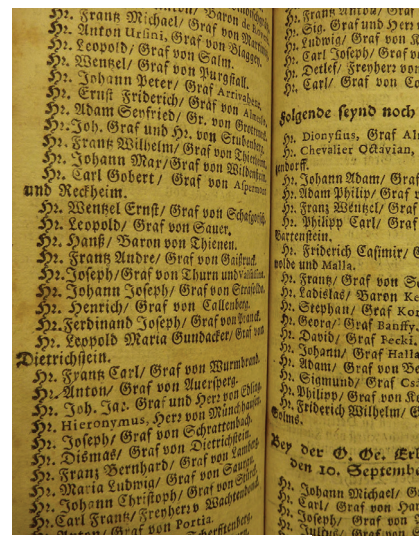 Hr. Frantz Michael/ Graf von
Hr. Anton Ursini, Graf von Blaggey.
Hr. Leopold/ Graf von Salm.
Hr. Wentzel/ Graf von Purgstall.
Hr. Johann Peter/ Graf Arrivabene.
Hr. Ernst Friderich/ Graf von
Hr. Adam Seyfried/ Gr. von
Hr. Joh. Graf und Hr. von Stubenberg.
Hr. Frantz Wilhelm/ Graf von Thierheim.
Hr. Johann Max/ Graf von Wildenstein.
Hr. Carl Gobert/ Graf von Aspremont
und Reckheim.
Hr. Wentzel Ernst/ Graf von Schafgotsch.
Hr. Leopold/ Graf von Sauer.
Hr. Hanß/ Baron von Thienen.
Hr. Frantz Andre/ Graf von Gaißruck.
Hr. Joseph/ Graf von Thurn und Valsassina.
Hr. Johann Joseph/ Graf von Strasoldo.
Hr. Henrich/ Graf von Callenberg.
Hr. Ferdinand Joseph/ Graf von
Hr. Leopold Maria Gundacker/ Graf von
Dietrichstein.
Hr. Frantz Carl/ Graf von Wurmbrand.
Hr. Anton/ Graf von Auersperg.
Hr. Joh. Jac. Graf und Herr von Edling.
Hr. Hieronymus, Herr von Münchhausen.
Hr. Joseph/ Graf von Schrattenbach.
Hr. Dismas/ Graf von Dietrichstein.
Hr. Franz Bernhard/ Graf von Lamberg.
Hr. Maria Ludwig/ Graf von Saurau.
Hr. Johann Christoph/ Graf von Stürck.
Hr. Carl Frantz/ Freyherr v Wachtendonck.
Hr. Anton/ Graf von Portia.
Hr. Frantz Anton/ Graf
Hr. Sig. Graf und Herr
Hr. Ludwig/ Graf von
Hr. Carl Joseph/ Graf vo
Hr. Detlef/ Freyherr von
Hr. Carl/ Graf von Co
Folgende seynd noch
Hr. Dionysius, Graf Al
Hr. Chevalier Octavian,
Hr. Johann Adam/ Graf
Hr. Adam Philip/ Graf v
Hr. Franz Wentzel/ Graf
Hr. Philipp Carl/ Graf
Bartenstein.
Hr. Friderich Casimir/ G
und Malla.
Hr. Frantz/ Graf von S
Hr. Ladislas/ Baron K
Hr. Stephan/ Graf Kor
Hr. Georg/ Graf Banffy
Hr. David/ Graf Pecki.
Hr. Johann/ Graf Halla
Hr. Adam/ Graf von Be
Hr. Sigmund/ Graf Cs
Hr. Philipp/ Graf von
Hr. Friderich Wilhelm/
Solms.
Bey der O. Oe. Erb
den 10. Septemb
Hr. Johann Michael/ G
Hr. Carl/ Graf von Har
Hr. Joseph/ Graf von
Hr. Julius/ Graf von